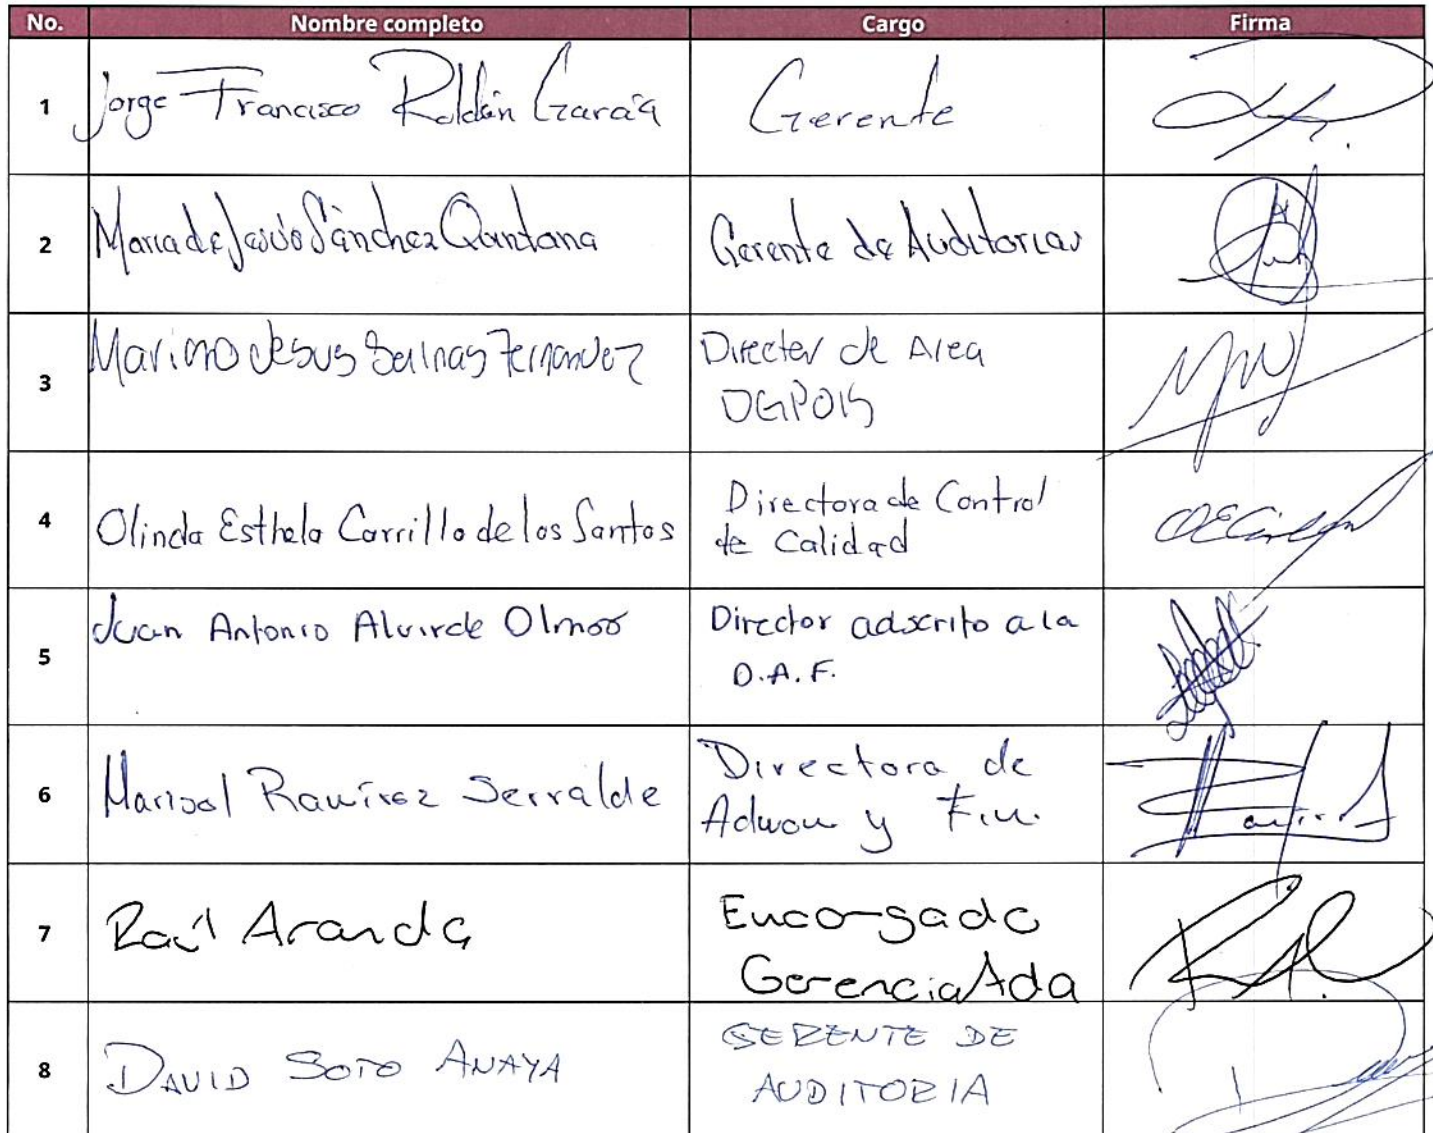 No. Nombre completo Cargo Firma
1 Jorge Francisco Roldán García Gerente
2 Maria de Jesús Sánchez Quintana Gerente de Auditorias
3 Marino Jesus Salinas Fernandez Director de Area
DGPOIS
4 Olinda Esthela Carrillo de los Santos Directora de Control
de Calidad
5 Juan Antonio Alvirde Olmos Director adscrito a la
D.A.F.
6 Marisol Ramírez Serralde Directora de
Admon y Fin.
7 Raúl Aranda Encargado
Gerencia Ada
8 DAVID SOTO ANAYA GERENTE DE
AUDITORIA